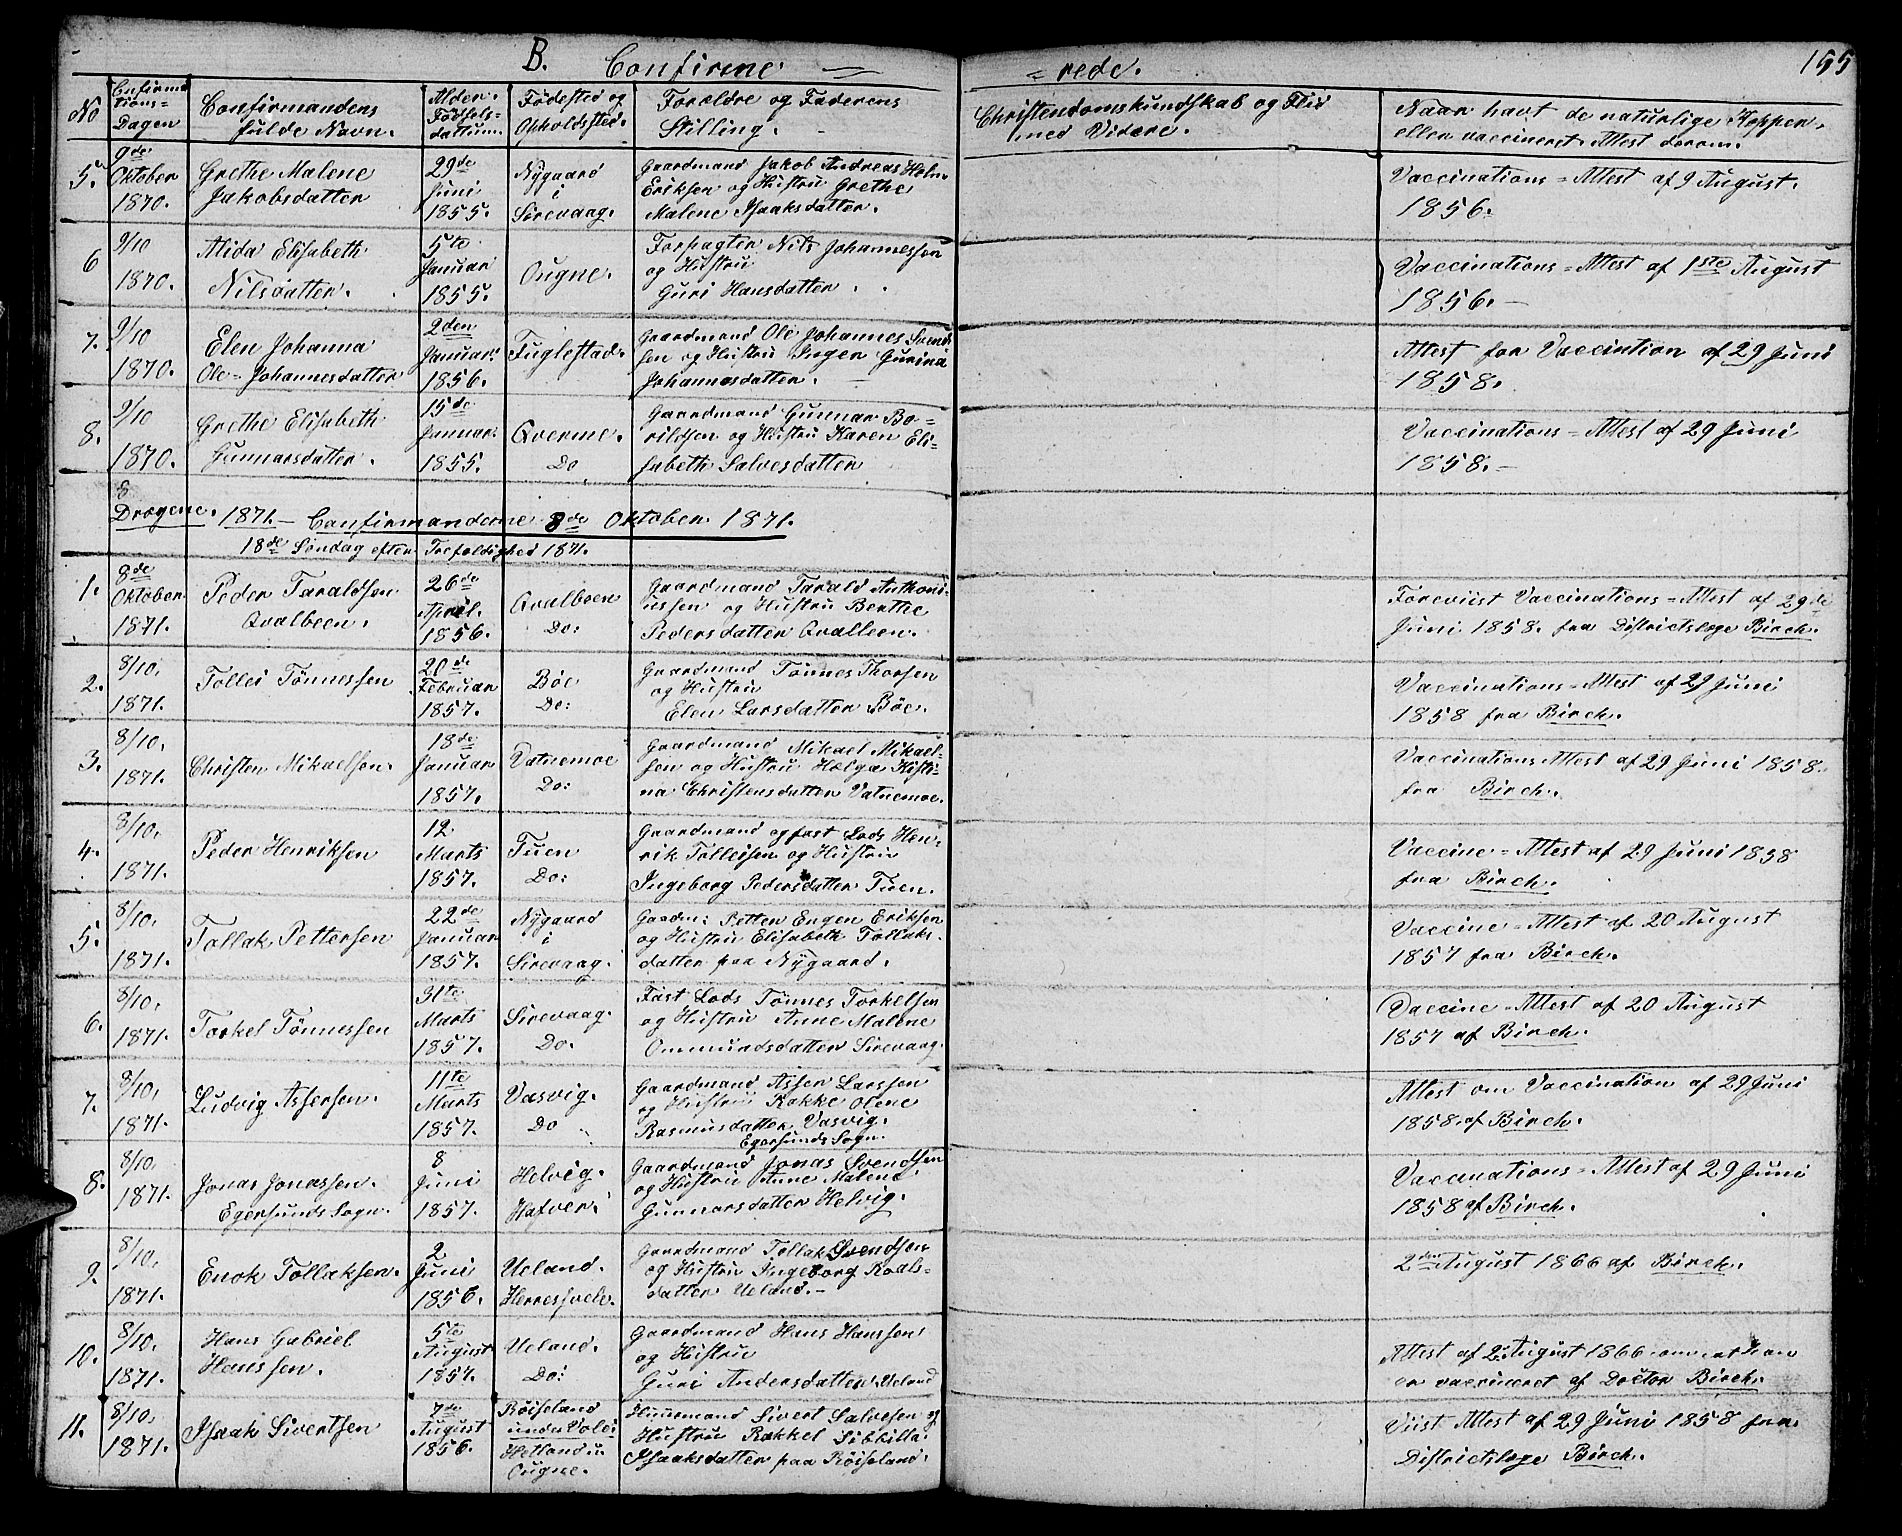 B. Confirme = = rede. 155
No
Confirma
tions=
Dagen
Confirmandens
fulde Navn.
Alder.
Fødsels-
dattum.
Fødested og
Opholdssted.
Forældre og Faderens
Stilling.
Christendomskundskab og Flid
med Videre.
Naar havt de naturlige Kopper,
eller vaccineret. Attest derom.
5.
9de
Oktober
1870.
Grethe Malene
Jakobsdatter
29de
Juni
1855.
Nygaard
i
Sirevaag.
Gaardmand Jakob Andreas Holm
Eriksen og Hustru Grethe
Malene Isaaksdatter.
Vaccinations=Attest af 9 August.
1856.
6
9/10
1870.
Alida Elisabeth
Nilsdatter.
5te
Januar
1855.
Ougne.
Forpagter Nils Johannessen
og Hustru
Guri Hansdatter.
Vaccinations=Attest af 1ste August
1856.
7.
9/10
1870.
Elen Johanna
Ole=Johannesdatter
2den
Januar
1856.
Fuglestad.
Gaardmand Ole Johannes Svend
sen og Hustru Inger Gurina
Johannesdatter.
Attest for Vaccintion af 29 Juni
1858.
8.
9/10
1870.
Grethe Elisabeth
Gunnarsdatter.
15de
Januar.
1855.
Qverme.
Do
Gaardmand Gunnar Bo-
rildsen og Hustru Karen Eli-
sabeth Salvesdatter
Vaccinations=Attest af 29 Juni
1858.
8
Drægene. 1871. Confirmanderne 8de Oktober. 1871.
18de Søndag efter Trefoldighed 1871.
1.
8de
Oktober
1871.
Peder Taraldsen
Qvalbeen.
26de
April.
1856.
Qvalbeen
Do:
Gaardmand Tarald Anthoni-
ussen og Hustru Berthe
Pedersdatter Qvalleen.
Foreviist Vaccinations=Attest af 29de
Juni 1858. fra Districtslæge Birch.
2.
8/10.
1871.
Tollei Tønnessen
20de
Februar
1857.
Bøe
Do:
Gaardmand Tønnes Thorsen
og Hustru
Elen Larsdatter Bøe.
Vaccinations=Attest af 29 Juni
1858 fra Birch.
3.
8/10.
1871.
Christen Mikaelsen.
18de
Januar
1857.
Vatnemoe
Do:
Gaardmand Mikael Mikael-
sen og Hustru Hælga Kisti-
na Christensdatter Vatnemoe.
Vaccinations Attest af 29 Juni 1858.
fra Birch.
4.
8/10.
1871.
Peder Henriksen
12
Marts
1857.
Tuen
Do:
Gaardmand og fast Lods Hen-
rik Tolleisen og Hustru
Ingeborg Pedersdatter Tuen.
Vaccine=Attest af 29 Juni 1858
fra Birch.
5.
8/10.
1871.
Tollak Pettersen
22de
Januar
1857.
Nygaard
i
Sirevaag.
Gaardm: Petter Enger Eriksen
og Hustru Elisabeth Tollaks-
datter paa Nygaard.
Vaccine=Attest af 20 August
1857 fra Birch.
6.
8/10.
1871.
Torkel Tønnessen
31te
Marts
1857.
Sirevaag.
Do.
Fast Lods Tønnes Torkelsen
og Hustru Anne Malene
Ommundsdatter Sirevaag.
Vaccine=Attest af 20 August
1857 af Birch.
7.
8/10.
1871.
Ludvig Assersen.
11te
Marts
1857.
Vasvig.
Do
Gaardmand Asser Larssen
og Hustru Rakke Olene
Rasmusdatter Vasvig.
Egersunds Sogn.
Attest om Vaccination af 29 Juni
1858. af Birch.
8.
8/10.
1871.
Jonas Jonassen.
Egersunds Sogn.
8
Juni
1857.
Helvig.
Hafver.
Gaardmand Jonas Svendsen
og Hustru Anne Malene
Gunnarsdatter Helvig.
Vaccinations=Attest af 29 Juni
1858 af Birch.
9.
8/10.
1871.
Enok Tollaksen.
2
Juni
1856.
Ueland.
Gaardmand Tollak Svendsen
og Hustru Ingeborg Roals-
datter Ueland.
2den August 1866 af Birch.
10.
8/10.
1871.
Hans Gabriel
Hanssen.
5te
August
1857.
Ueland.
Do:
Gaardmand Hans Hanssen
og Hustru
Guri Andersdatter Ueland
Attest af 2. August 1866 om at han
er vaccineret af Doctor Birch.
11.
8/10.
1871.
Isaak Sivertsen
7de
August
1856.
Røiseland
under
Hetland i
Ougne.
Huusmand Sivert Salvesen og
Hustru Rakkel Sibbilla
Isaaksdatter paa Røiseland.
Viist Attest af 29 Juni 1858 fra
Districtslæge Birch.